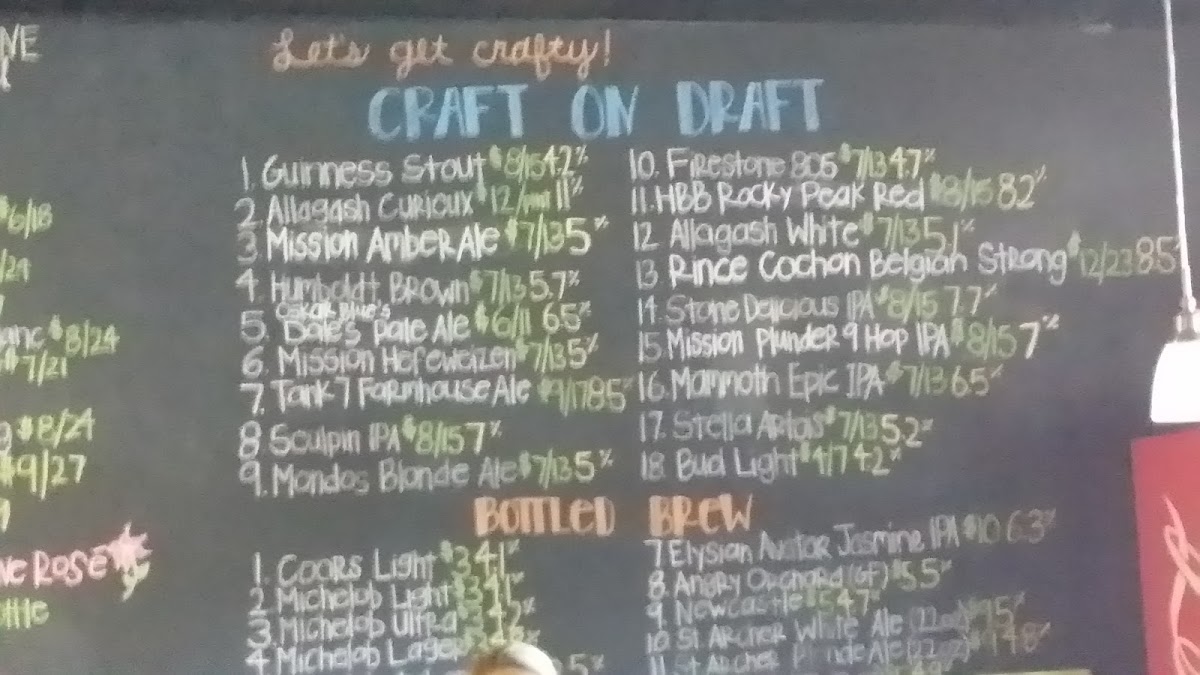 Let's get crafty!
CRAFT ON DRAFT
1. Guinness Stout $8/15 4.2%
2. Allagash Curioux $12/ 11%
3. Mission Amber Ale $7/13 5%
4. Humboldt Brown $7/13 5.7%
5. Oskar Blue's Dale's Pale Ale $6/11 6.5%
6. Mission Hefeweizen $7/13 5%
7. Tank 7 Farmhouse Ale $9/17 8.5%
8. Sculpin IPA $8/15 7%
9. Mandos Blonde Ale $7/13 5%
10. Firestone 805 $7/13 4.7%
11. HBB Rocky Peak Red $8/15 8.2%
12. Allagash White $7/13 5.1%
13. Rince Cochon Belgian Strong $12/23 8.5%
14. Stone Delicious IPA $8/15 7.7%
15. Mission Plunder 9 Hop IPA $8/15 7%
16. Mammoth Epic IPA $7/13 6.5%
17. Stella Artois $7/13 5.2%
18. Bud Light $4/7 4.2%
BOTTLED BREW
1. Coors Light $3 4.1%
2. Michelob Light $3 4.1%
3. Michelob Ultra $3 4.2%
4. Michelob Lager
7. Elysian Avatar Jasmine IPA $10 6.3%
8. Angry Orchard (GF) $5 5%
9. Newcastle $5 4.7%
10. St Archer White Ale (22oz) $ 5%
11. St Archer Blonde Ale (22oz) $ 4.8%
$6/18
/24
$8/24
$7/21
$8/24
$9/27
Rosé